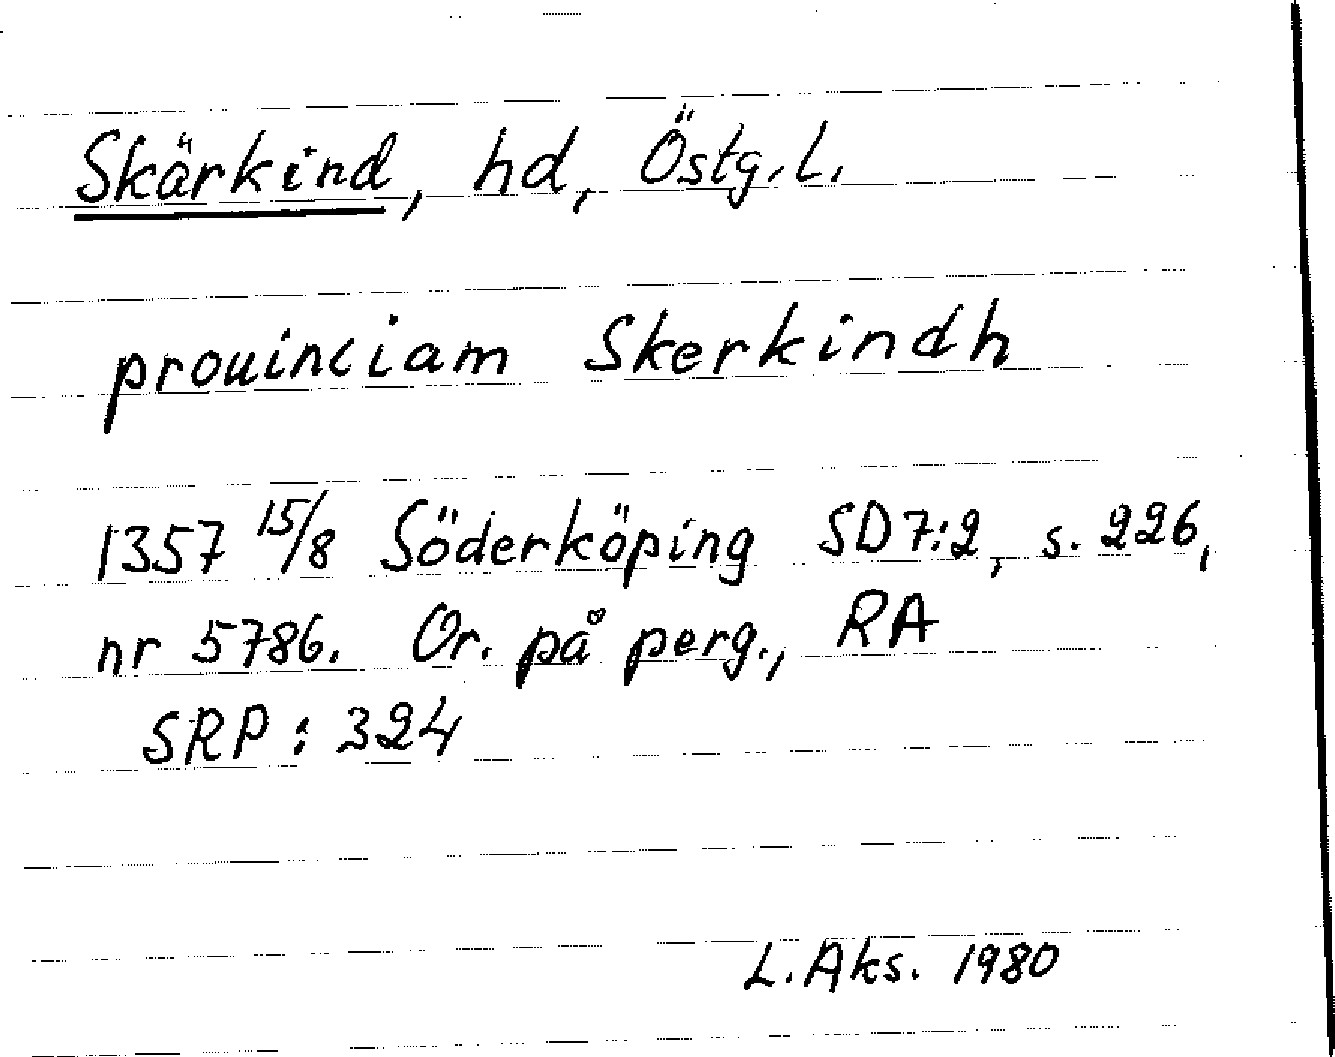 Skärkind, hd, Östg.L.
prouinciam Skerkindh
1357 15/8 Söderköping SD7:2, s. 226,
nr 5786. Or. på perg., RA
SRP: 324
L. Aks. 1980